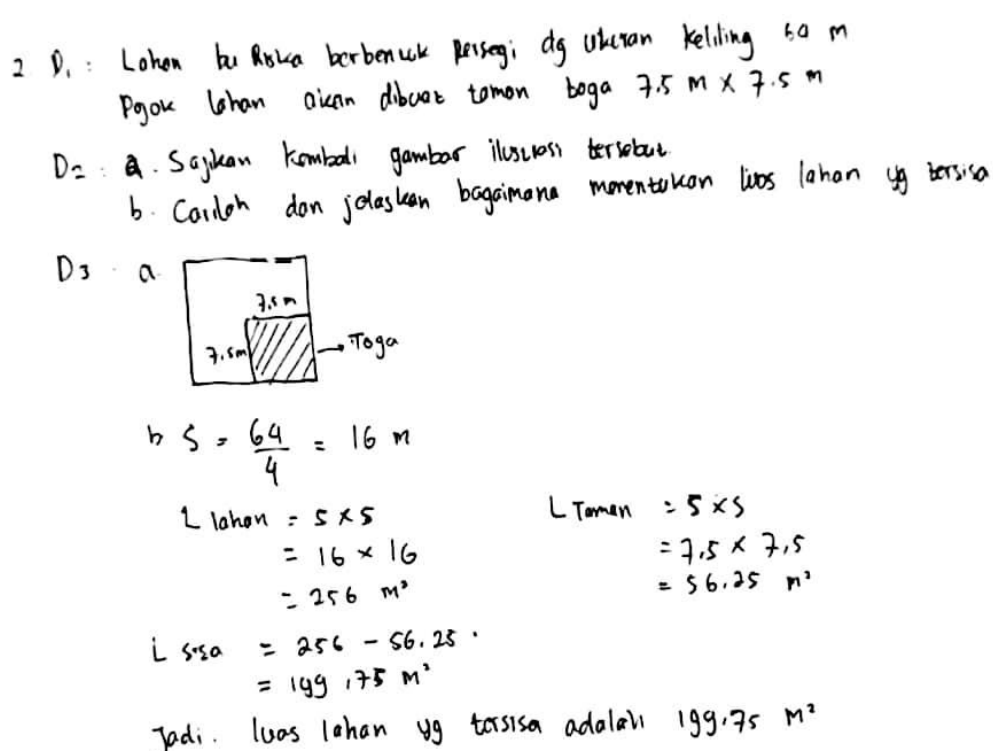 2 D1 : Lahan bu Riska berbentuk persegi dg ukuran keliling 64 m
Pojok lahan akan dibuat taman toga 7,5 m x 7.5 m
D2 : a. Sajikan kembali gambar ilustrasi tersebut.
b. Carilah dan jelaskan bagaimana menentukan luas lahan yg tersisa
D3 . a.
7,5 m
7,5m
Toga
b S = 64/4 = 16 m
L lahan = s x s
= 16 x 16
= 256 m²
L Taman = s x s
= 7,5 x 7,5
= 56.25 m²
L sisa = 256 - 56.25
= 199,75 m²
Jadi. luas lahan yg tersisa adalah 199,75 m²